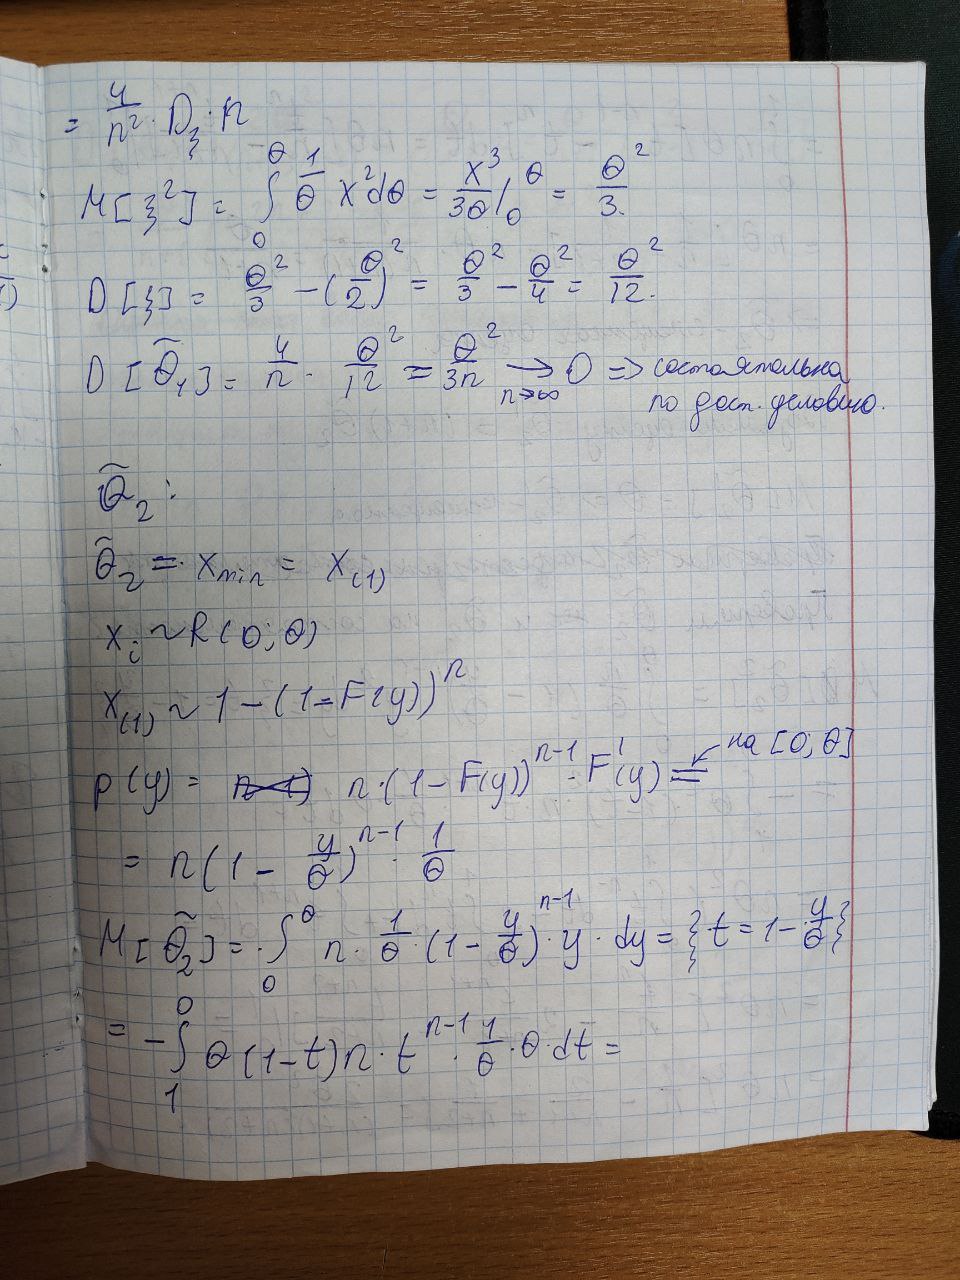 = 4/n² · Dξ · n
M[ξ²] = ∫₀^θ 1/θ x² dθ = x³/3θ |₀^θ = θ²/3.
D[ξ] = θ²/3 - (θ/2)² = θ²/3 - θ²/4 = θ²/12.
D[θ̃₁] = 4/n · θ²/12 = θ²/3n →(n→∞) 0 => состоятельна
по дост. условию.
θ̃₂ :
θ̃₂ = x_min = x₍₁₎
x_i ~ R(0; θ)
x₍₁₎ ~ 1 - (1 - F(y))ⁿ
p(y) = n · (1 - F(y))ⁿ⁻¹ · F'(y) = на [0; θ]
= n(1 - y/θ)ⁿ⁻¹ · 1/θ
M[θ̃₂] = ∫₀^θ n · 1/θ · (1 - y/θ)ⁿ⁻¹ · y · dy = {t = 1 - y/θ}
= -∫₁⁰ θ(1 - t) n · tⁿ⁻¹ · 1/θ · θ · dt =